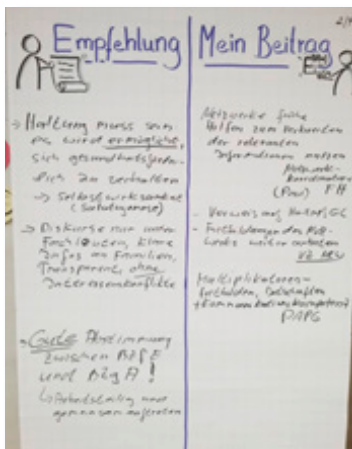 2/
Empfehlung
→ Haltung muss sein:
es wird ermöglicht,
sich gesundheitsförder-
lich zu verhalten
→ Selbstwirksamkeit
(Salutogenese)
→ Diskurse nur unter
Fachleuten, klare
Infos an Familien,
Transparent, ohne
Interessenkonflikte
→ Gute Abstimmung
zwischen BZfE
und BZgA!
↳ Arbeitsteilig und
gemeinsam auftreten
Mein Beitrag
Netzwerke Frühe
Hilfen zum Verbreiten
der relevanten
Informationen nutzen
Netzwerk-
koordination
FH
- Verweis auf
- Fortbildungen des
weiter
VZ NRW
Multiplikatoren-
fortbilden, Botschaften
+ Kommunikationskompetenz